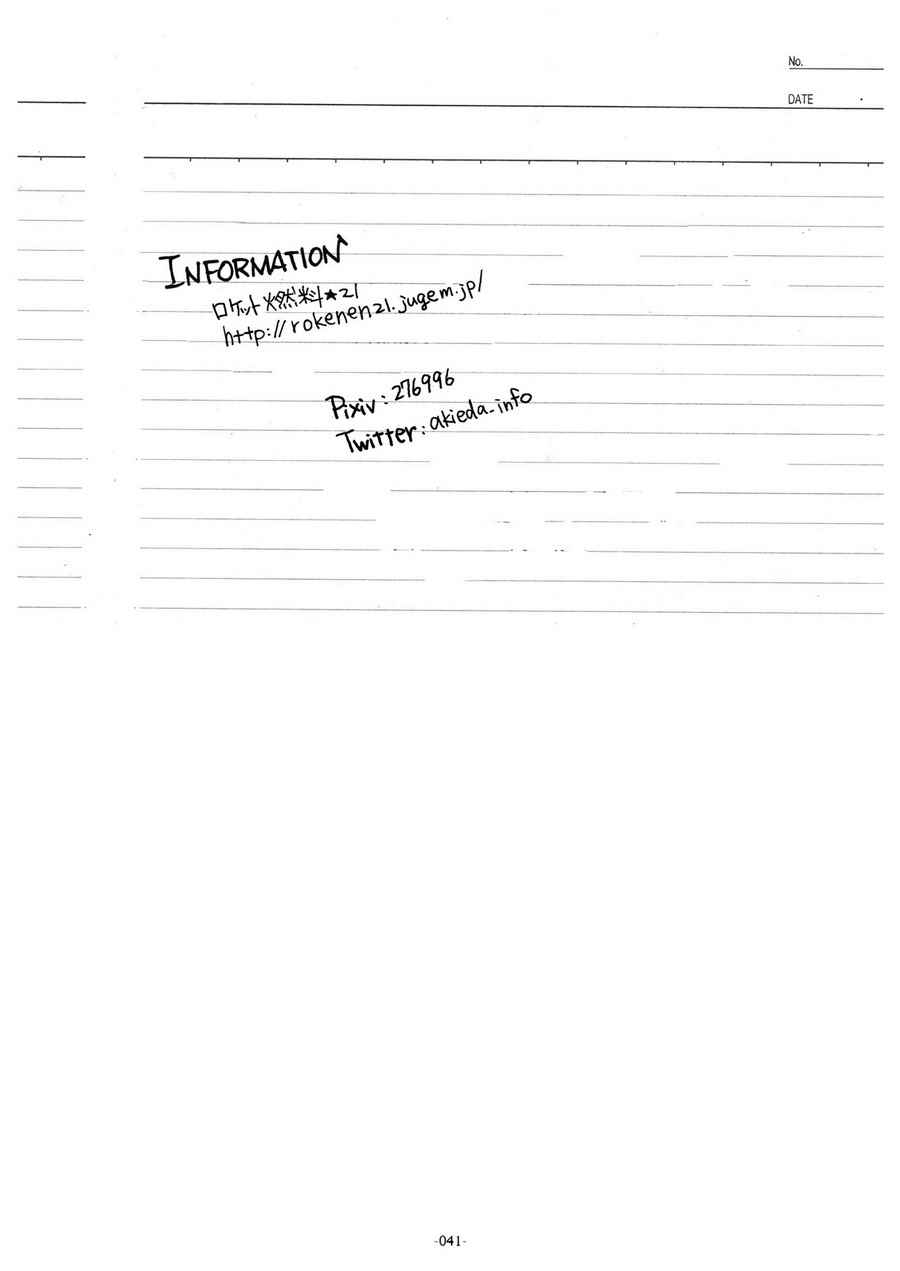 No.
DATE ・
INFORMATION
ロケット燃料★21
http://rokenen21.jugem.jp/
Pixiv:276996
Twitter:akieda_info
-041-